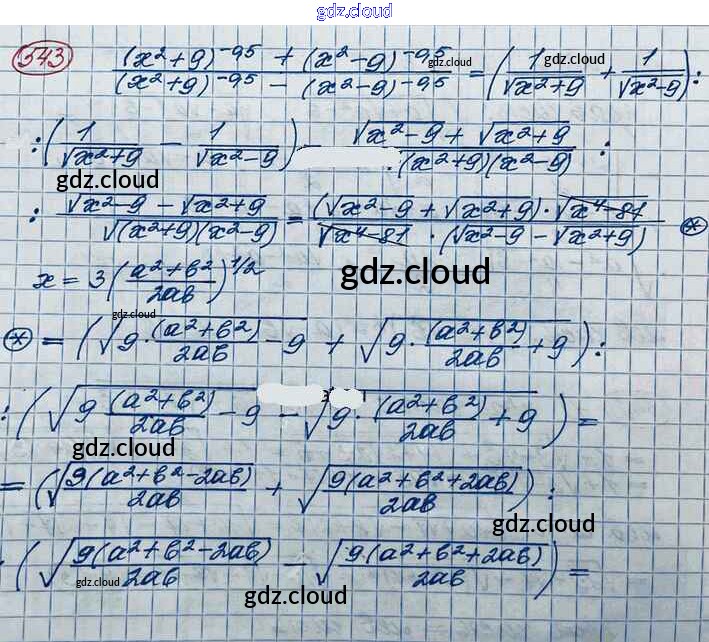 gdz.cloud
543 ((x²+9)^-0,5 + (x²-9)^-0,5)/((x²+9)^-0,5 - (x²-9)^-0,5) = (1/√(x²+9) + 1/√(x²-9)) :
gdz.cloud gdz.cloud
: (1/√(x²+9) - 1/√(x²-9)) = (√(x²-9) + √(x²+9))/((x²+9)(x²-9)) :
gdz.cloud gdz.cloud
: (√(x²-9) - √(x²+9))/√((x²+9)(x²-9)) = ((√(x²-9) + √(x²+9)) · √(x⁴-81))/(√(x⁴-81) · (√(x²-9) - √(x²+9))) ⊛
x = 3((a²+b²)/2ab)^1/2 gdz.cloud
gdz.cloud
⊛ = (√(9·(a²+b²)/2ab - 9) + √(9·(a²+b²)/2ab + 9)) :
: (√(9(a²+b²)/2ab - 9) - √(9·(a²+b²)/2ab + 9)) =
gdz.cloud
= (√(9(a²+b²-2ab)/2ab) + √(9(a²+b²+2ab)/2ab)) :
gdz.cloud
: (√(9(a²+b²-2ab)/2ab) - √(9(a²+b²+2ab)/2ab)) =
gdz.cloud gdz.cloud